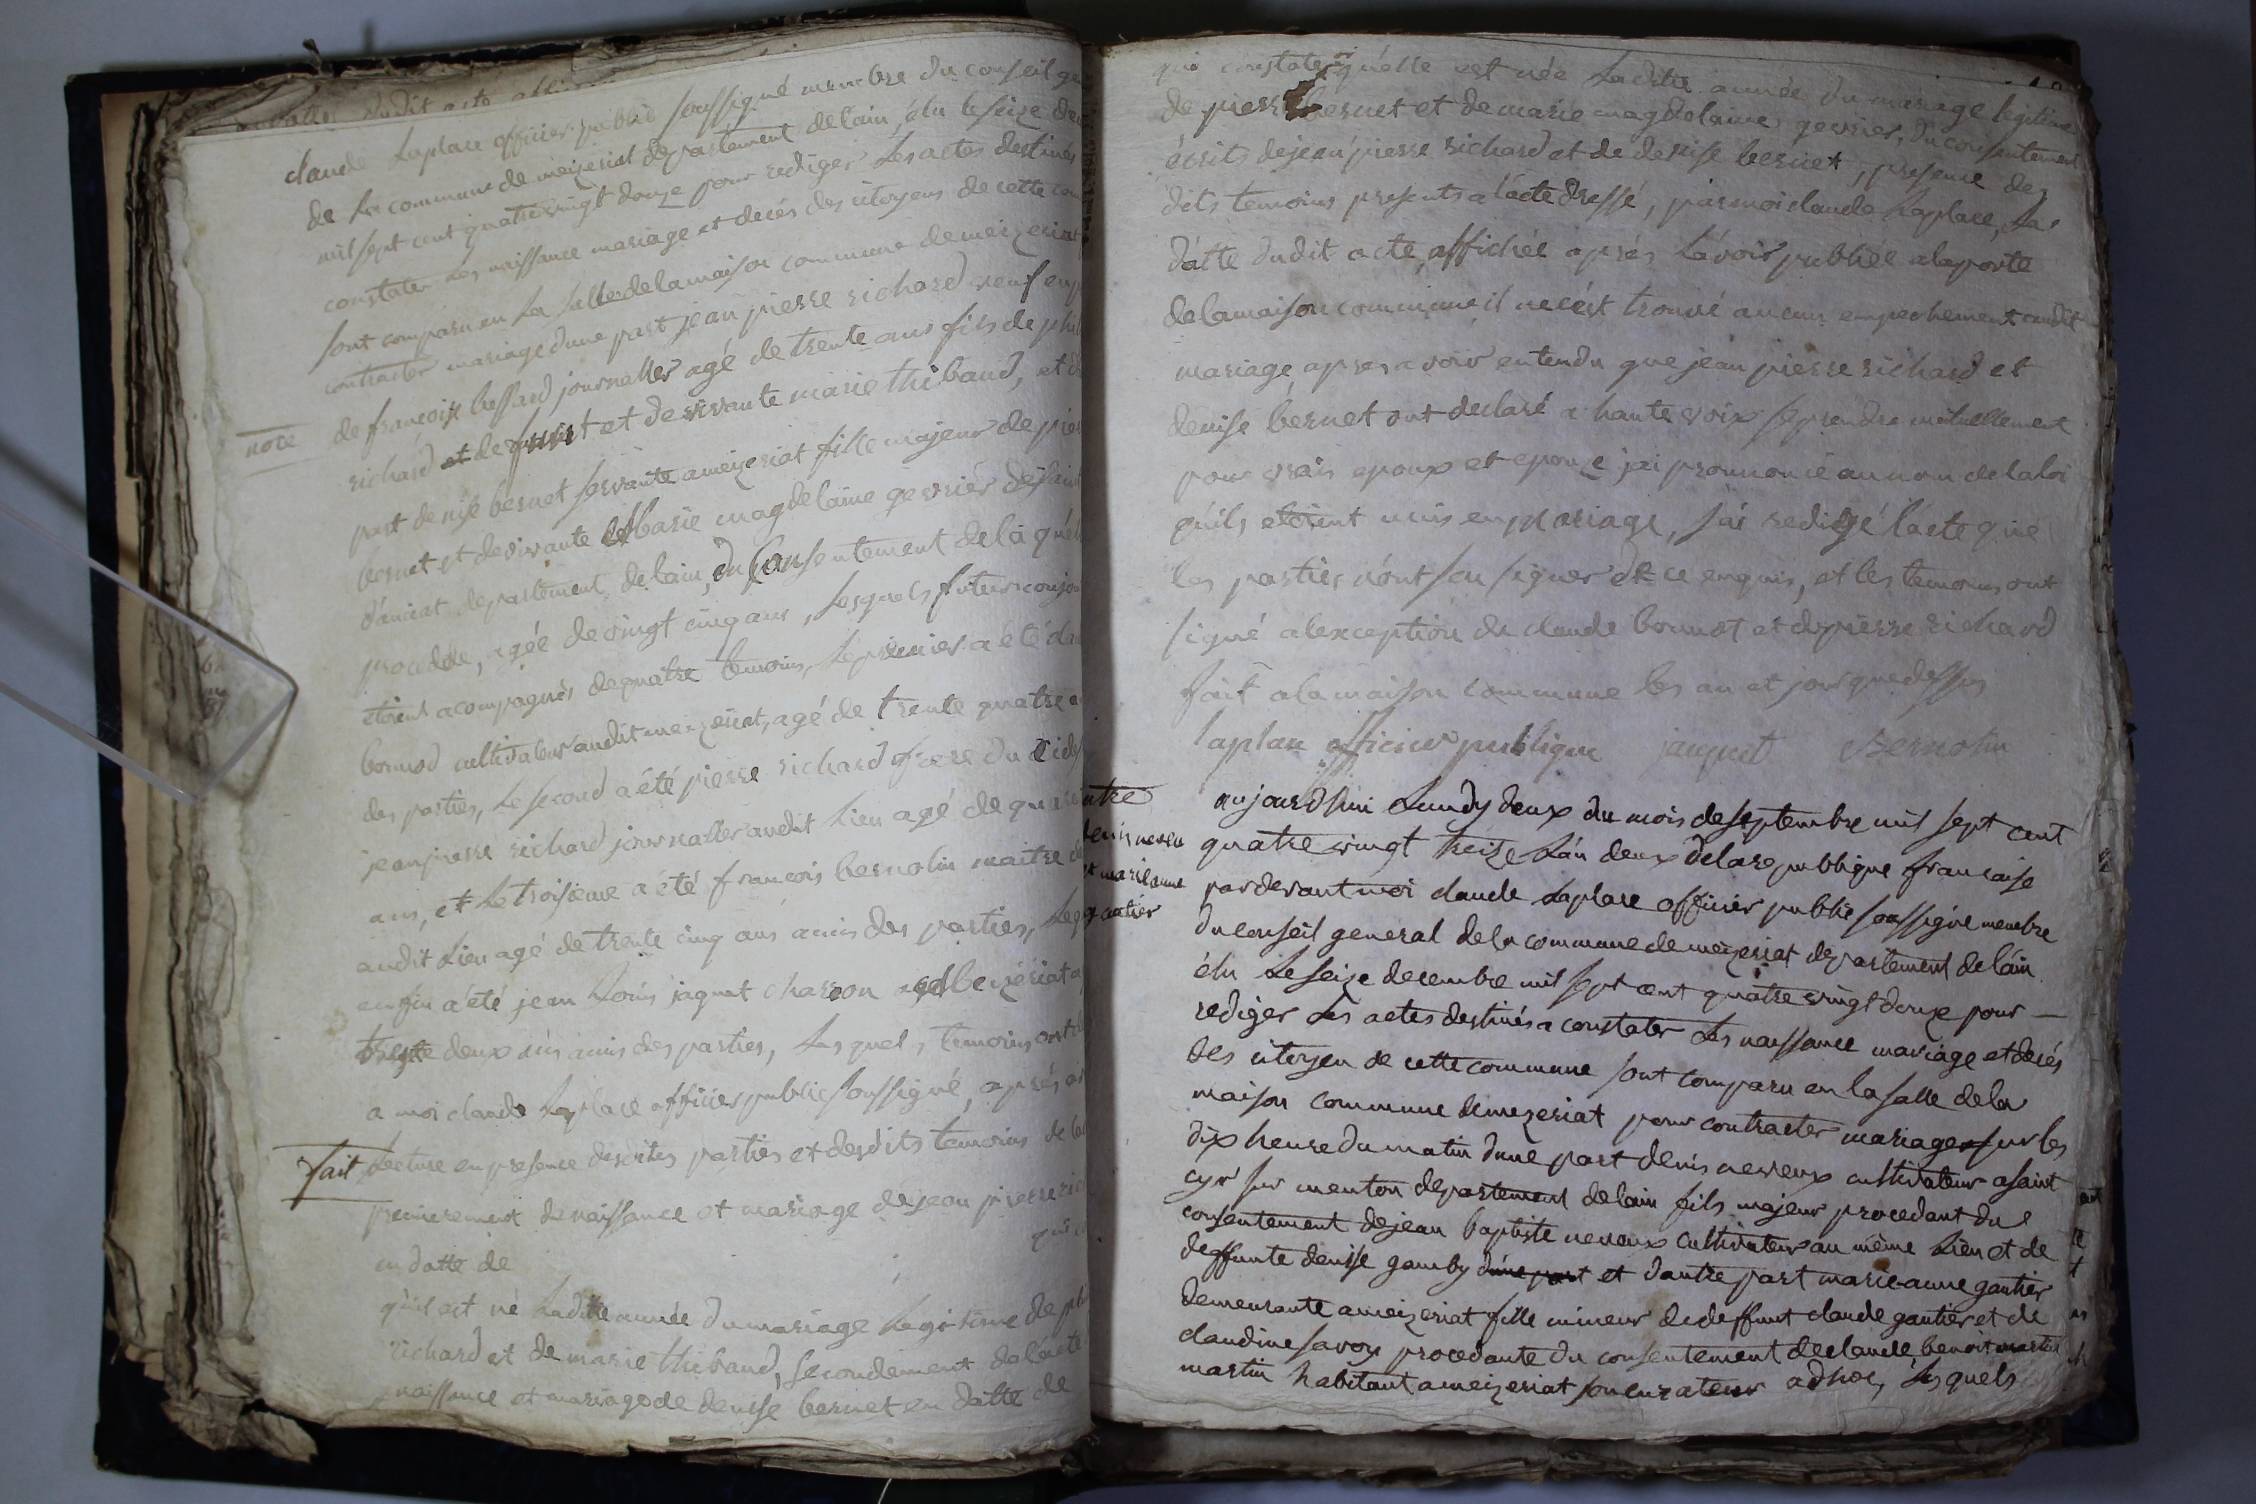 claude Laplace officier public soussigné membre du conseil
de la commune de meizeriat departement de lain, élu le seize
mil sept cent quatre vingt douze pour rediger Les actes destinés
constater Les naissance mariage et decés des citoyens de cette
sont comparu en La salle de la maison commune de meizeriat
contracter mariage dune part jean pierre richard veuf en
de françoise bussard journallier agé de trente ans fils de
note
richard et de et de vivante marie thibaud, et
part denise bernet servante a meizeriat fille majeur de
bernet et de vivante Marie magdelaine gevrier
departement de lain, du Consentement de la
procedde, agée de vingt cinq ans, Lesquels futurs
etoient acompagnés de quatre temoins, Le premier a été
bonnod cultivateur audit meizeriat, agé de trente quatre
des parties, Le second a été pierre richard frere du
jean pierre richard journallier audit Lieu agé de
ans, et Le troisieme a été françois bernolin maitre
audit Lieu agé de trente cinq ans amis des parties,
enfin a été jean Louis jaquet charon a
trente deux ans amis des parties, Lesquels temoins ont
a moi claude Laplace officier public soussigné, aprés
fait
Lecture en presence desdites parties et desdits temoins
premierement de naissance et mariage de jean pierre
en datte de
qu'il est né Ladite année du mariage Legitime de
richard et de marie thibaud, secondement de l'acte
naissance et mariage de denise bernet en datte de
qui constate qu'elle est née Ladite année du mariage legitime
de pierre bernet et de marie magdelaine gevrier, du consentement
écrits de jean pierre richard et de denise bernet, presence des
dits temoins presents a l'acte dressé, par moi claude Laplace, La
datte dudit acte affichée aprés Lavoir publiée a la porte
de la maison commune il ne cést trouvé aucun empechement audit
mariage, apres avoir entendu que jean pierre richard et
denise bernet ont declaré a haute voix se prendre mutuellement
pour vrais epoux et epouze jai prononcé au nom de la loi
quils etoient unis en mariage, jai redigé lacte que
les parties n'ont seu signer de ce enquis, et les temoins ont
signé a lexception de claude bonnot et de pierre richard
fait a la maison commune les an et jour que dessus
laplace officier publique jaquet Bernolin
aujourdhui Lundy deux du mois de septembre mil sept cent
quatre vingt treize L'an deux de la republique francaise
pardevant moi claude Laplace officier public soussigné membre
du conseil general de la commune de meizeriat departement de láin
élu Le seize decembre mil sept cent quatre vingt douze pour
rediger Les actes destinés a constater Les naissance mariage et decés
des citoyen de cette commune sont comparu en la salle de la
maison commune de mezeriat pour contracter mariage sur les
dix heure du matin dune part denis neveux cultivateur a saint
cyr sur menton departement de lain fils majeur procedant du
consentement de jean baptiste neveux cultivateur au même Lieu et de
deffunte denise gamby dune part et dautre part marie anne gautier
demeurante a meizeriat fille mineur de deffunt claude gautier et de
claudine savoy procedante du consentement de claude benoit martin
martin habitant a meizeriat son curateur adhoc, Lesquels